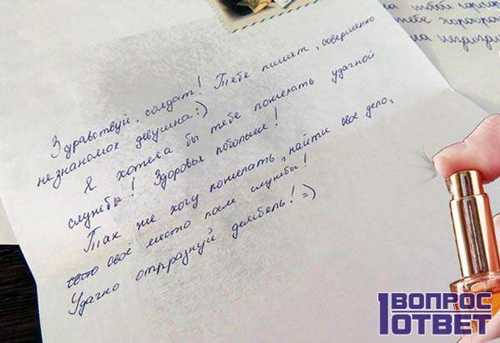 Здравствуй, солдат! Тебе пишет, совершенно
незнакомая девушка:)
Я хотела бы тебе пожелать удачной
службы! Здоровья побольше!
Так же хочу пожелать, найти свое дело,
своё место после службы!
Удачно отпразднуй дембель! =)
1 ВОПРОС
1 ОТВЕТ